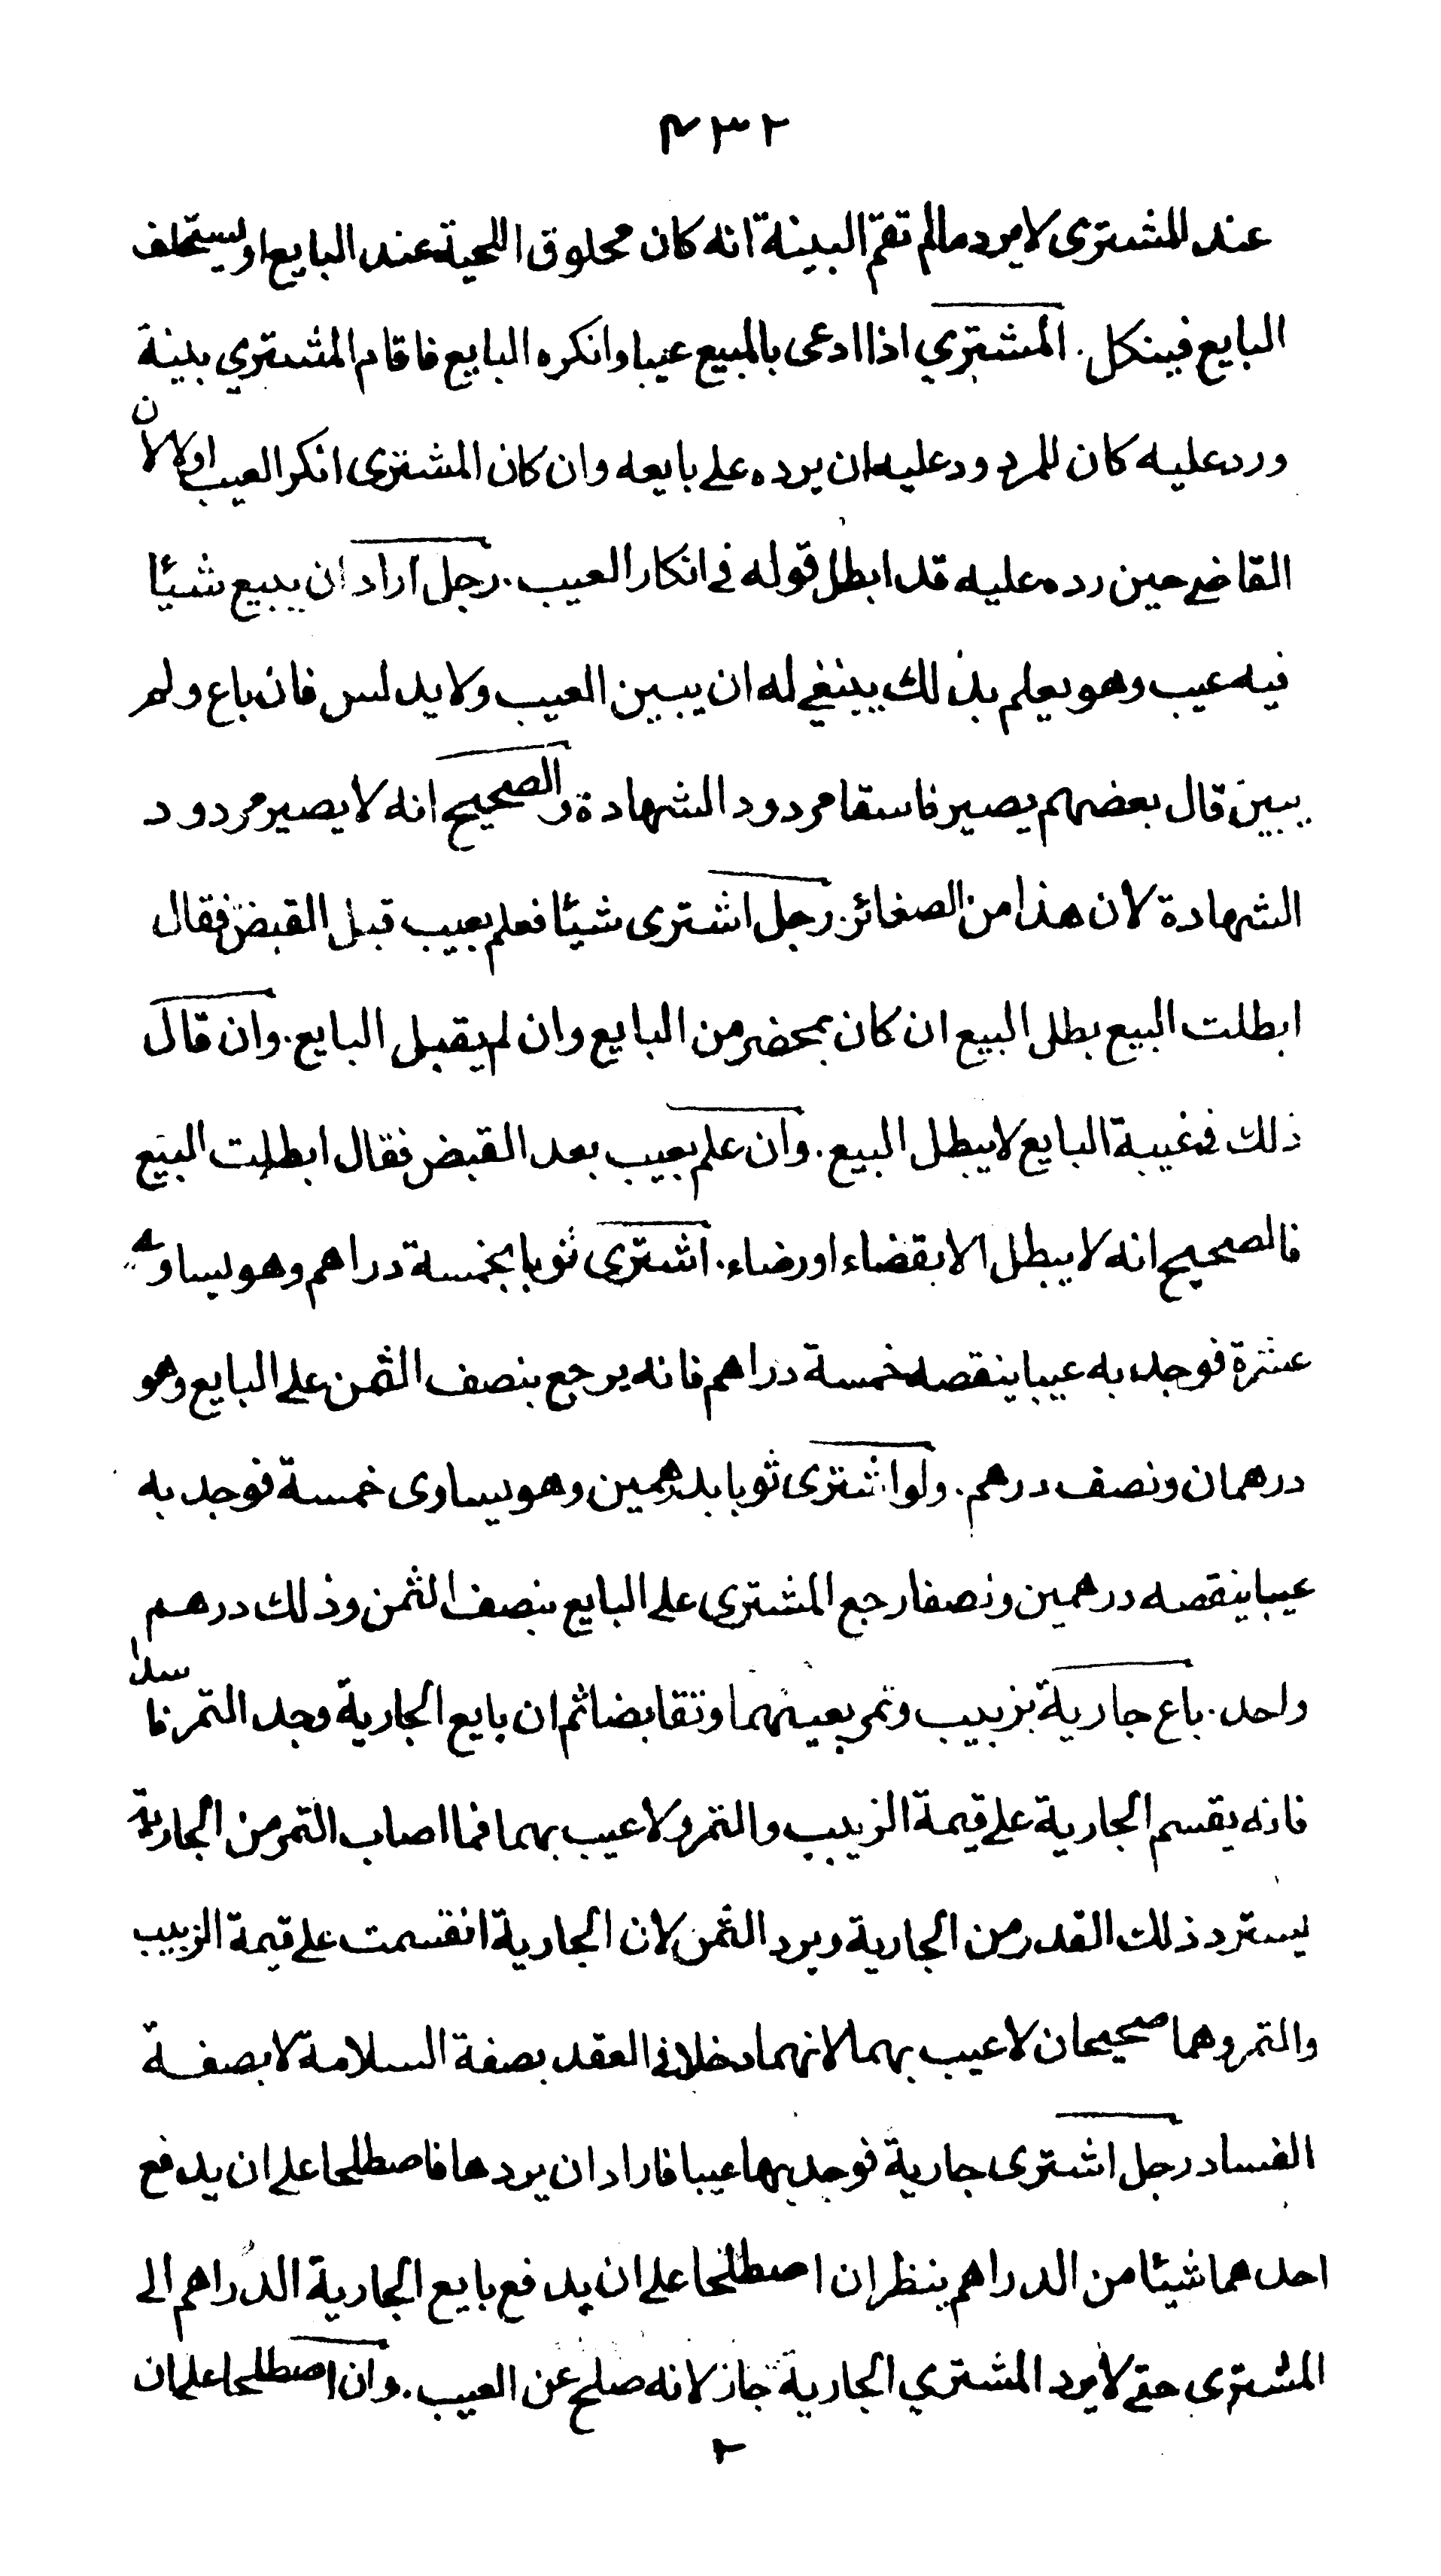 ٤٣٢
عند المشترى لا يرد ما لم تقم البينة انه كان محلوق اللحية عند البايع او يستحلف
البايع فينكل . المشتري اذا ادعى بالمبيع عيبا وانكره البايع فاقام المشتري بينة
ورد عليه كان للمردود عليه ان يرده على بايعه وان كان المشترى انكر العيب اولا لان
القاضى حين رده عليه قد ابطل قوله فى انكار العيب . رجل اراد ان يبيع شيئا
فيه عيب وهو يعلم بذلك ينبغى له ان يبين العيب ولا يدلس فان باع ولم
يبين قال بعضهم يصير فاسقا مردود الشهادة والصحيح انه لا يصير مردود
الشهادة لان هذا من الصغائر . رجل اشترى شيئا فعلم بعيب قبل القبض فقال
ابطلت البيع بطل البيع ان كان بمحضر من البايع وان لم يقبل البايع . وان قال
ذلك فى غيبة البايع لا يبطل البيع . وان علم بعيب بعد القبض فقال ابطلت البيع
فالصحيح انه لا يبطل الا بقضاء او رضاء . اشترى ثوبا بخمسة دراهم وهو يساوي
عشرة فوجد به عيبا ينقصه خمسة دراهم فانه يرجع بنصف الثمن على البايع وهو
درهمان ونصف درهم . ولو اشترى ثوبا بدرهمين وهو يساوى خمسة فوجد به
عيبا ينقصه درهمين ونصفا رجع المشترى على البايع بنصف الثمن وذلك درهم
واحد . باع جارية بزبيب وتمر بعينهما وتقابضا ثم ان بايع الجارية وجد التمر فاسدا
فانه يقسم الجارية على قيمة الزبيب والتمر ولا عيب بهما فما اصاب التمر من الجارية
يسترد ذلك القدر من الجارية ويرد الثمن لان الجارية انقسمت على قيمة الزبيب
والتمر وهما صحيحان لا عيب بهما لانهما دخلا فى العقد بصفة السلامة لا بصفة
الفساد رجل اشترى جارية فوجد بها عيبا فاراد ان يردها فاصطلحا على ان يدفع
احدهما شيئا من الدراهم ينظر ان اصطلحا على ان يدفع بايع الجارية الدراهم الى
المشترى حتى لا يرد المشتري الجارية جاز لانه صلح عن العيب . وان اصطلحا على ان
٢